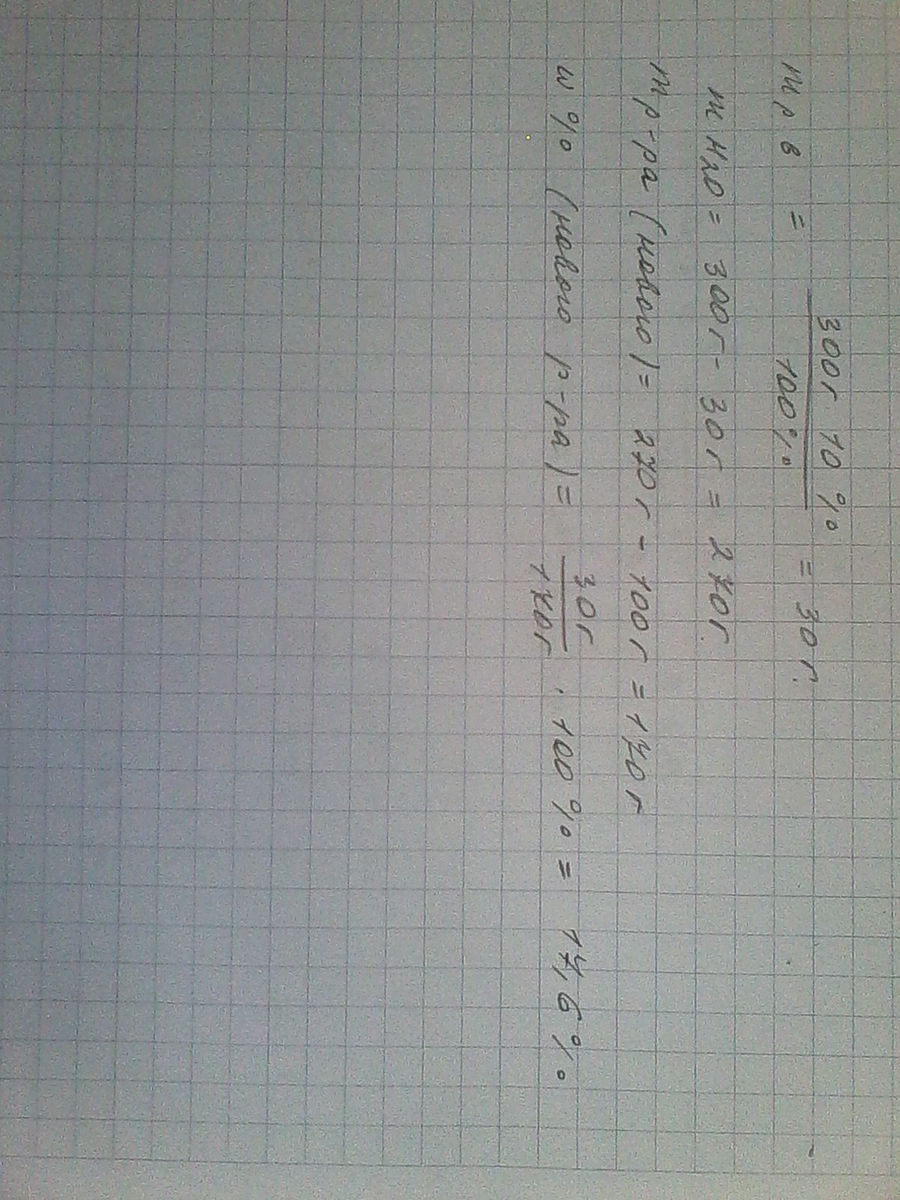 m р в = 300г 10% / 100% = 30г.
m H2O = 300г - 30г = 270г.
m р-ра (нового) = 270г - 100г = 170г
w % (нового р-ра) = 30г / 170г . 100% = 17,6%